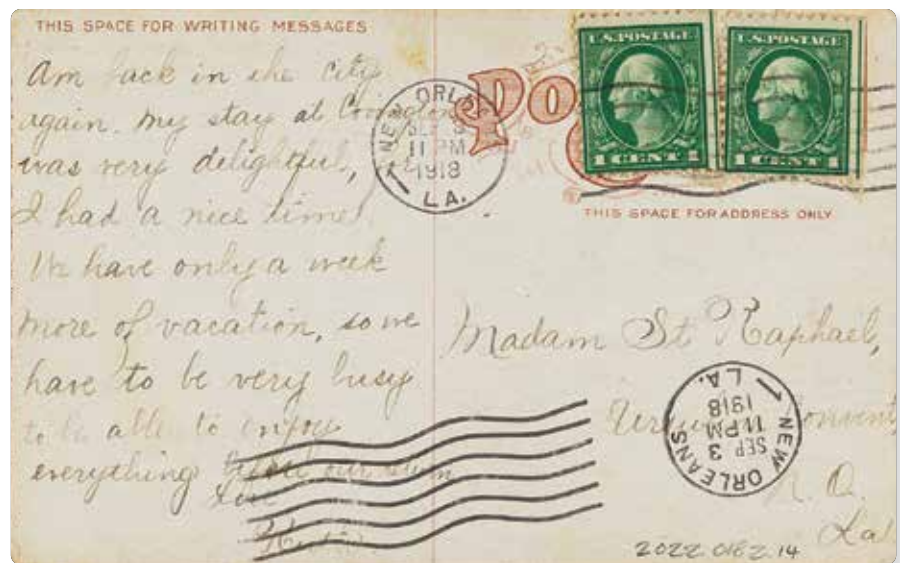 THIS SPACE FOR WRITING MESSAGES
Am back in the city
again. My stay at Covington
was very delightful,
I had a nice time.
We have only a week
more of vacation, so we
have to be very busy
to be able to enjoy
everything before our return
NEW ORLEANS
SEP 3
11 PM
1918
LA.
Po
U.S. POSTAGE
1 CENT 1
U.S. POSTAGE
1 CENT 1
THIS SPACE FOR ADDRESS ONLY
Madam St Raphael,
Convent
N. O.
La
NEW ORLEANS
SEP 3
11 PM
1918
LA.
2022.0182.14